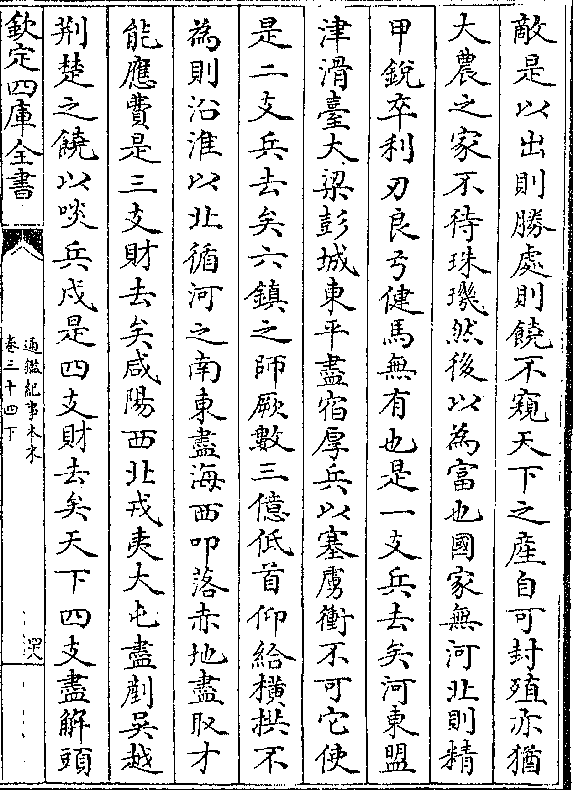 敵是以出則勝處則饒不窺天下之產自可封殖亦猶
大農之家不待珠璣然後以為富也國家無河北則精
甲銳卒利刃良弓健馬無有也是一支兵去矣河東盟
津滑臺大梁彭城東平盡宿厚兵以塞虜衝不可它使
是二支兵去矣六鎮之師厥數三億低首仰給橫拱不
為則沿淮以北循河之南東盡海西叩洛赤地盡取才
能應費是三支財去矣咸陽西北戎夷大屯盡剷吳越
荆楚之饒以啖兵戍是四支財去矣天下四支盡解頭
欽定四庫全書
通鑑紀事本末
卷三十四下